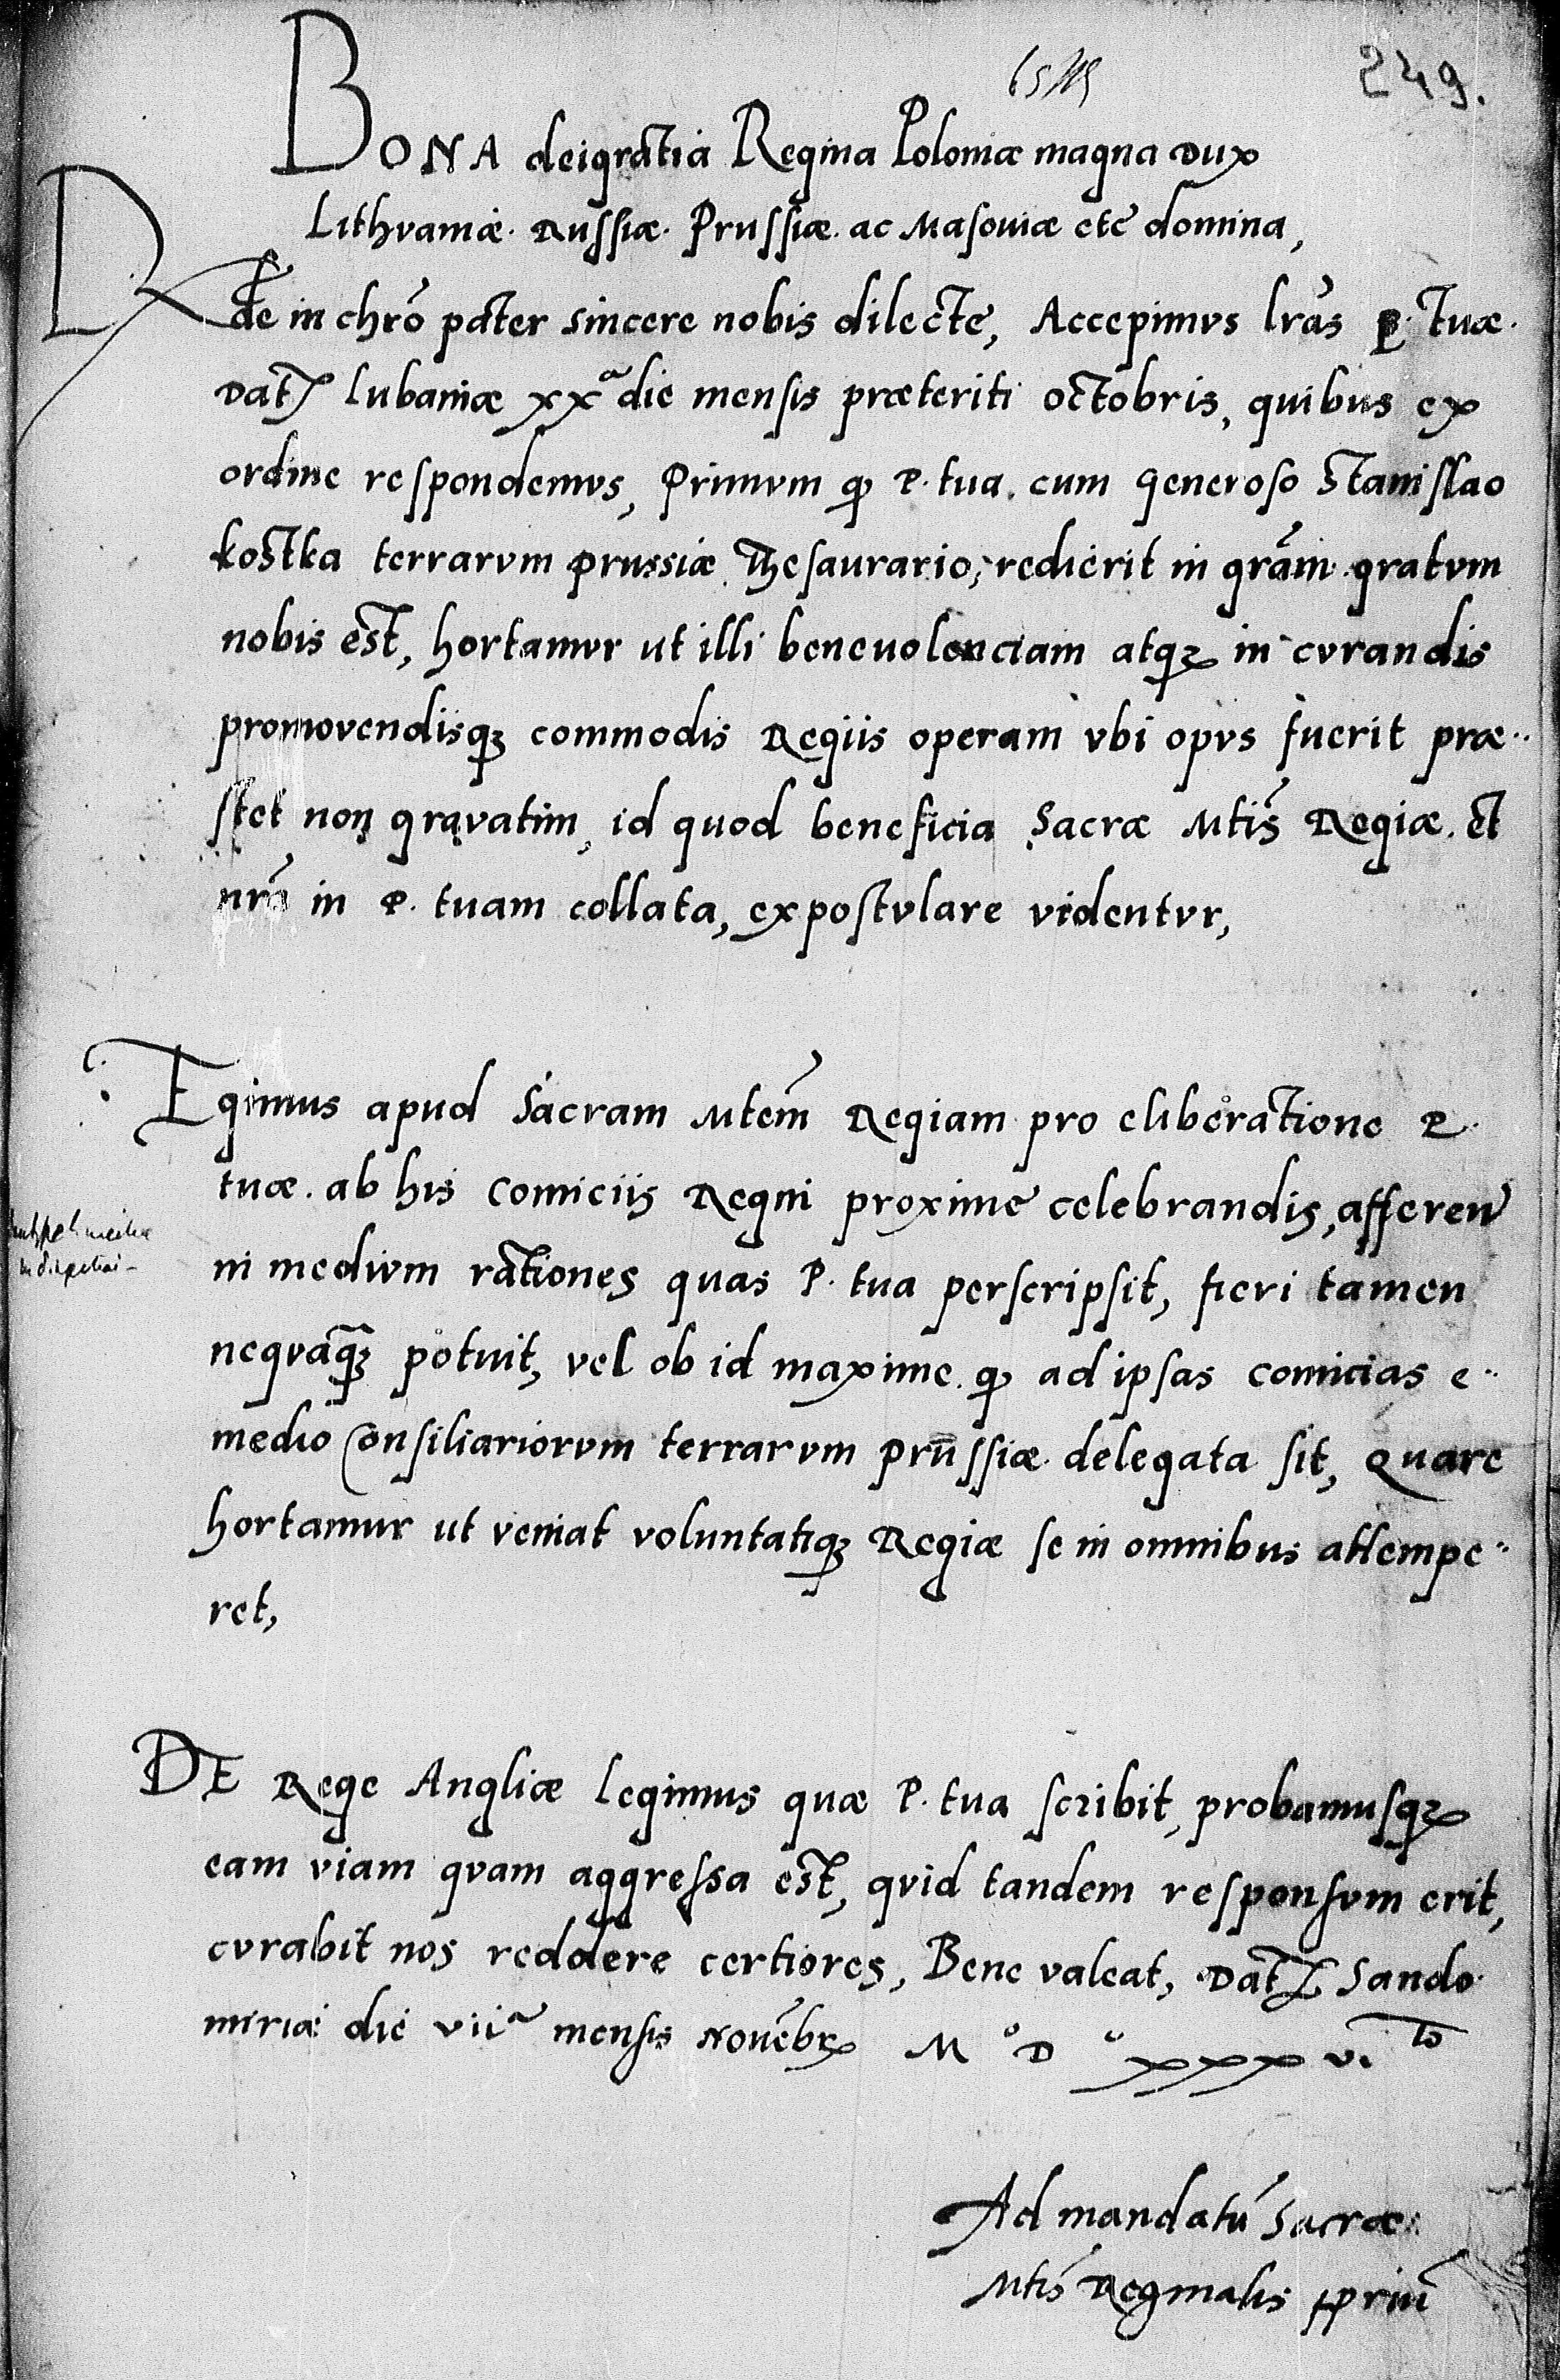 249.
BONA deigratia Regina Poloniæ magna Dux
Lithvaniæ. Russiæ. Prussiæ. ac Masoviæ etc̄ domina,
Rde in chr̄o pater sincere nobis dilecte, Accepimvs lr̄as P. tuæ.
Dat̄ Lubaviæ xxª die mensis præteriti octobris, quibus ex
ordine respondemvs, Primvm ꝙ P. tua. cum generoso Stanislao
kostka terrarvm prussiæ Thesaurario, redierit in gr̄am gratvm
nobis est, hortamvr ut illi benevolenciam atqꝫ in cvrandis
promovendisqꝫ commodis Regiis operam vbi opvs fuerit præ..
stet non gravatim, id quod beneficia Sacræ Mt̄is Regiæ. et
nr̄a in P. tuam collata, expostvlare videntvr,
Egimus apud Sacram Mtem̄ Regiam pro eliberatione P..
tuæ. ab his comiciis Regni proxime celebrandis, afferen̄
in medivm rationes quas P. tua perscripsit, fieri tamen
neqvaq̄ꝫ potuit, vel ob id maxime. ꝙ ad ipsas comicias e..
medio Consiliariorvm terrarvm prussiæ. delegata sit, Quare
hortamur ut veniat voluntatiqꝫ Regiæ se in omnibus attempe..
ret,
DE Rege Angliæ legimus quæ P. tua scribit, probamusqꝫ
eam viam qvam aggressa est, qvid tandem responsvm erit,
cvrabit nos reddere certiores, Bene valeat, Dat̄ Sando
miriæ die viiª mensis Novēbrꝭ M° D° xxx vi.to
Ad mandatū Sacræ
Mt̄is Reginalis ꝓpriū